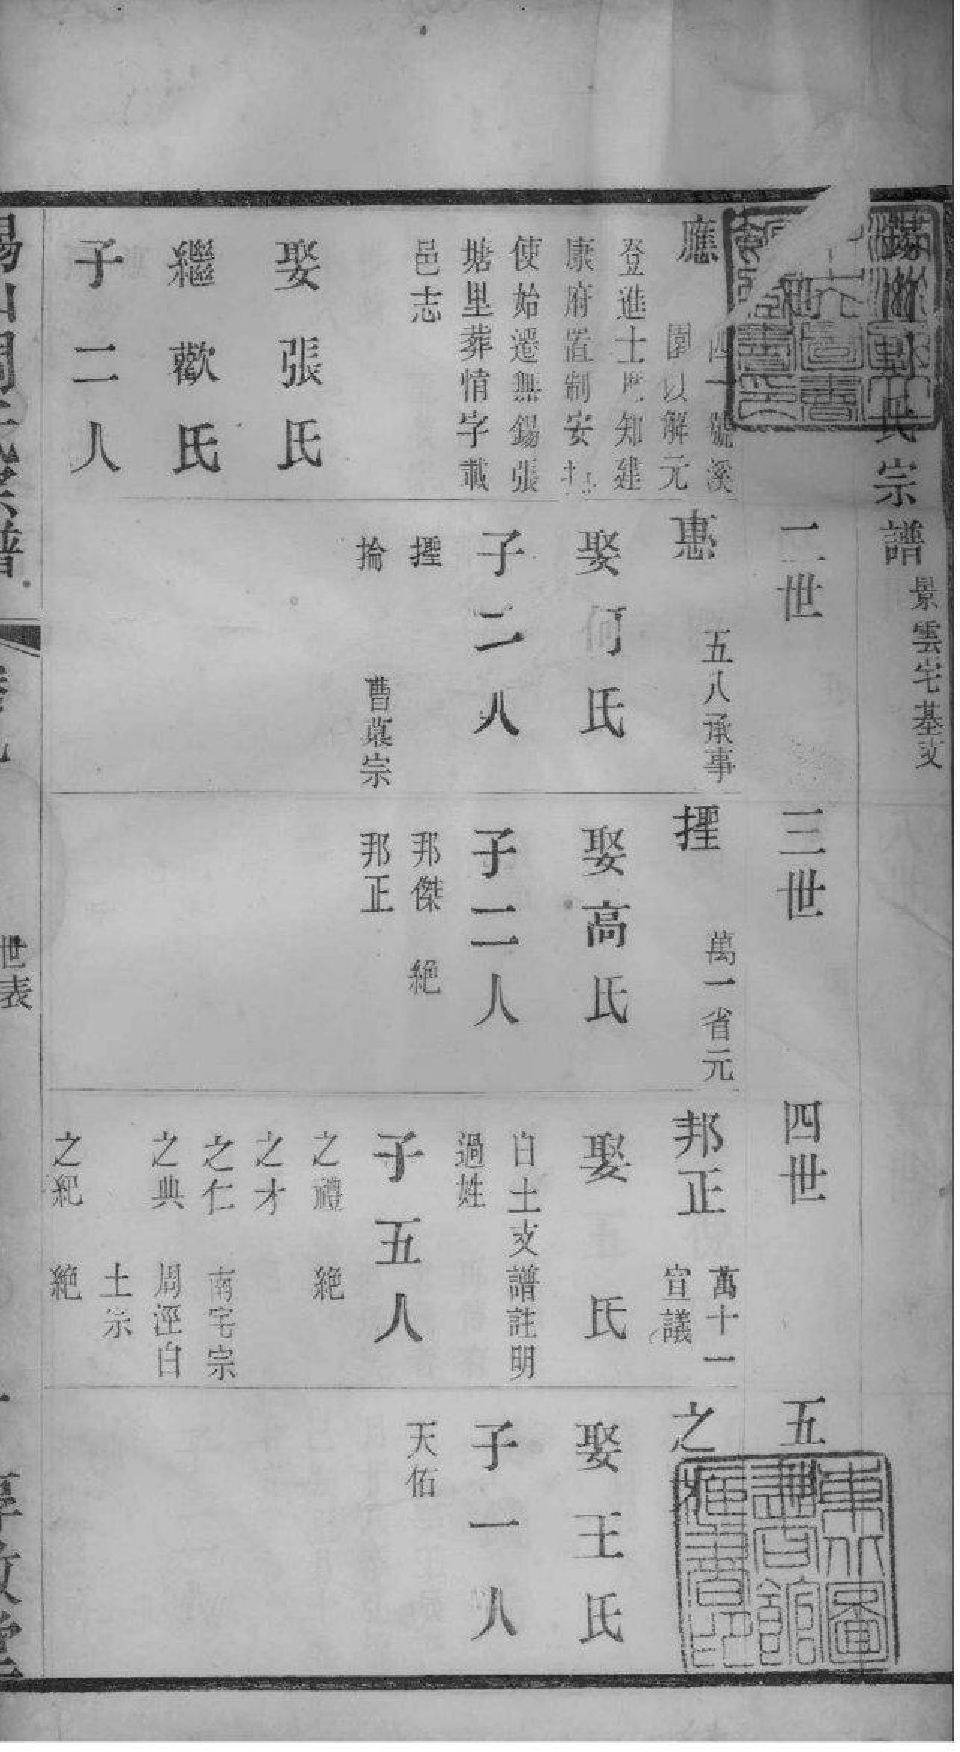 錫山周氏宗譜 景雲宅基支
二世
三世
四世
五
應
四一 號溪
園以解元
登進士歷知建
康府置制安
使始遷無錫張
塘里葬情字載
邑志
娶張氏
繼歡氏
子二人
惠
五八承事
娶何氏
子二人
摼
掄 曹莊宗
摼
萬一省元
娶高氏
子二人
邦傑 絶
邦正
邦正
萬十一
宣議
娶 氏
白土支譜註明
過姓
子五人
之禮 絶
之才
之仁 南宅宗
之典 周涇白
土宗
之紀 絶
之才
娶王氏
子一人
天佑
錫山周氏宗譜
卷九
世表
一
享敘堂
東北圖書館藏書印